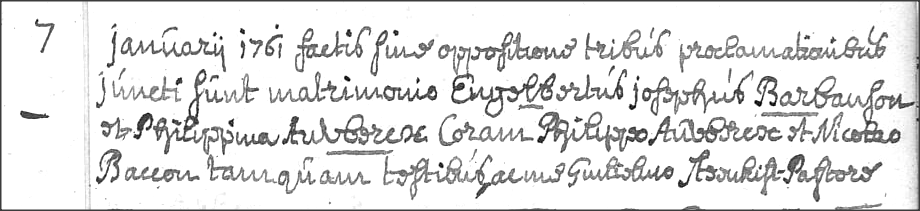 7 januarij 1761 factis sine oppositione tribus proclamationibus
juncti sunt matrimonio Engelbertus josephus Barbanson
et Philippina Auverdx Coram Philippo Auverdx et Nicolao
Baccon tamquam testibus, ac me Guilielmo Steenkist Pastore